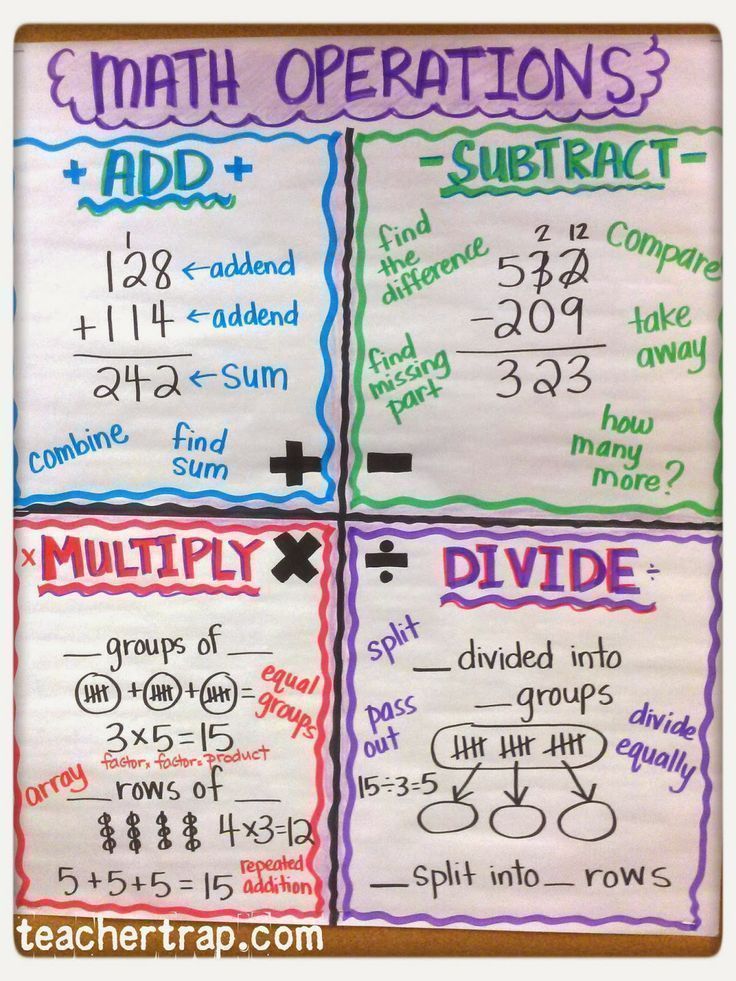 MATH OPERATIONS
+ ADD +
1
128 ← addend
+114 ← addend
242 ← sum
combine
find
sum
+
- SUBTRACT -
find
the
difference
2 12
532
-209
323
Compare
take
away
find
missing
part
how
many
more?
-
× MULTIPLY ×
__ groups of __
+ + =
equal
groups
3×5=15
factor × factor = product
array
__ rows of __
4×3=12
5+5+5=15
repeated
addition
÷ DIVIDE ÷
split
__ divided into
__ groups
pass
out
divide
equally
15÷3=5
__ split into __ rows
teachertrap.com